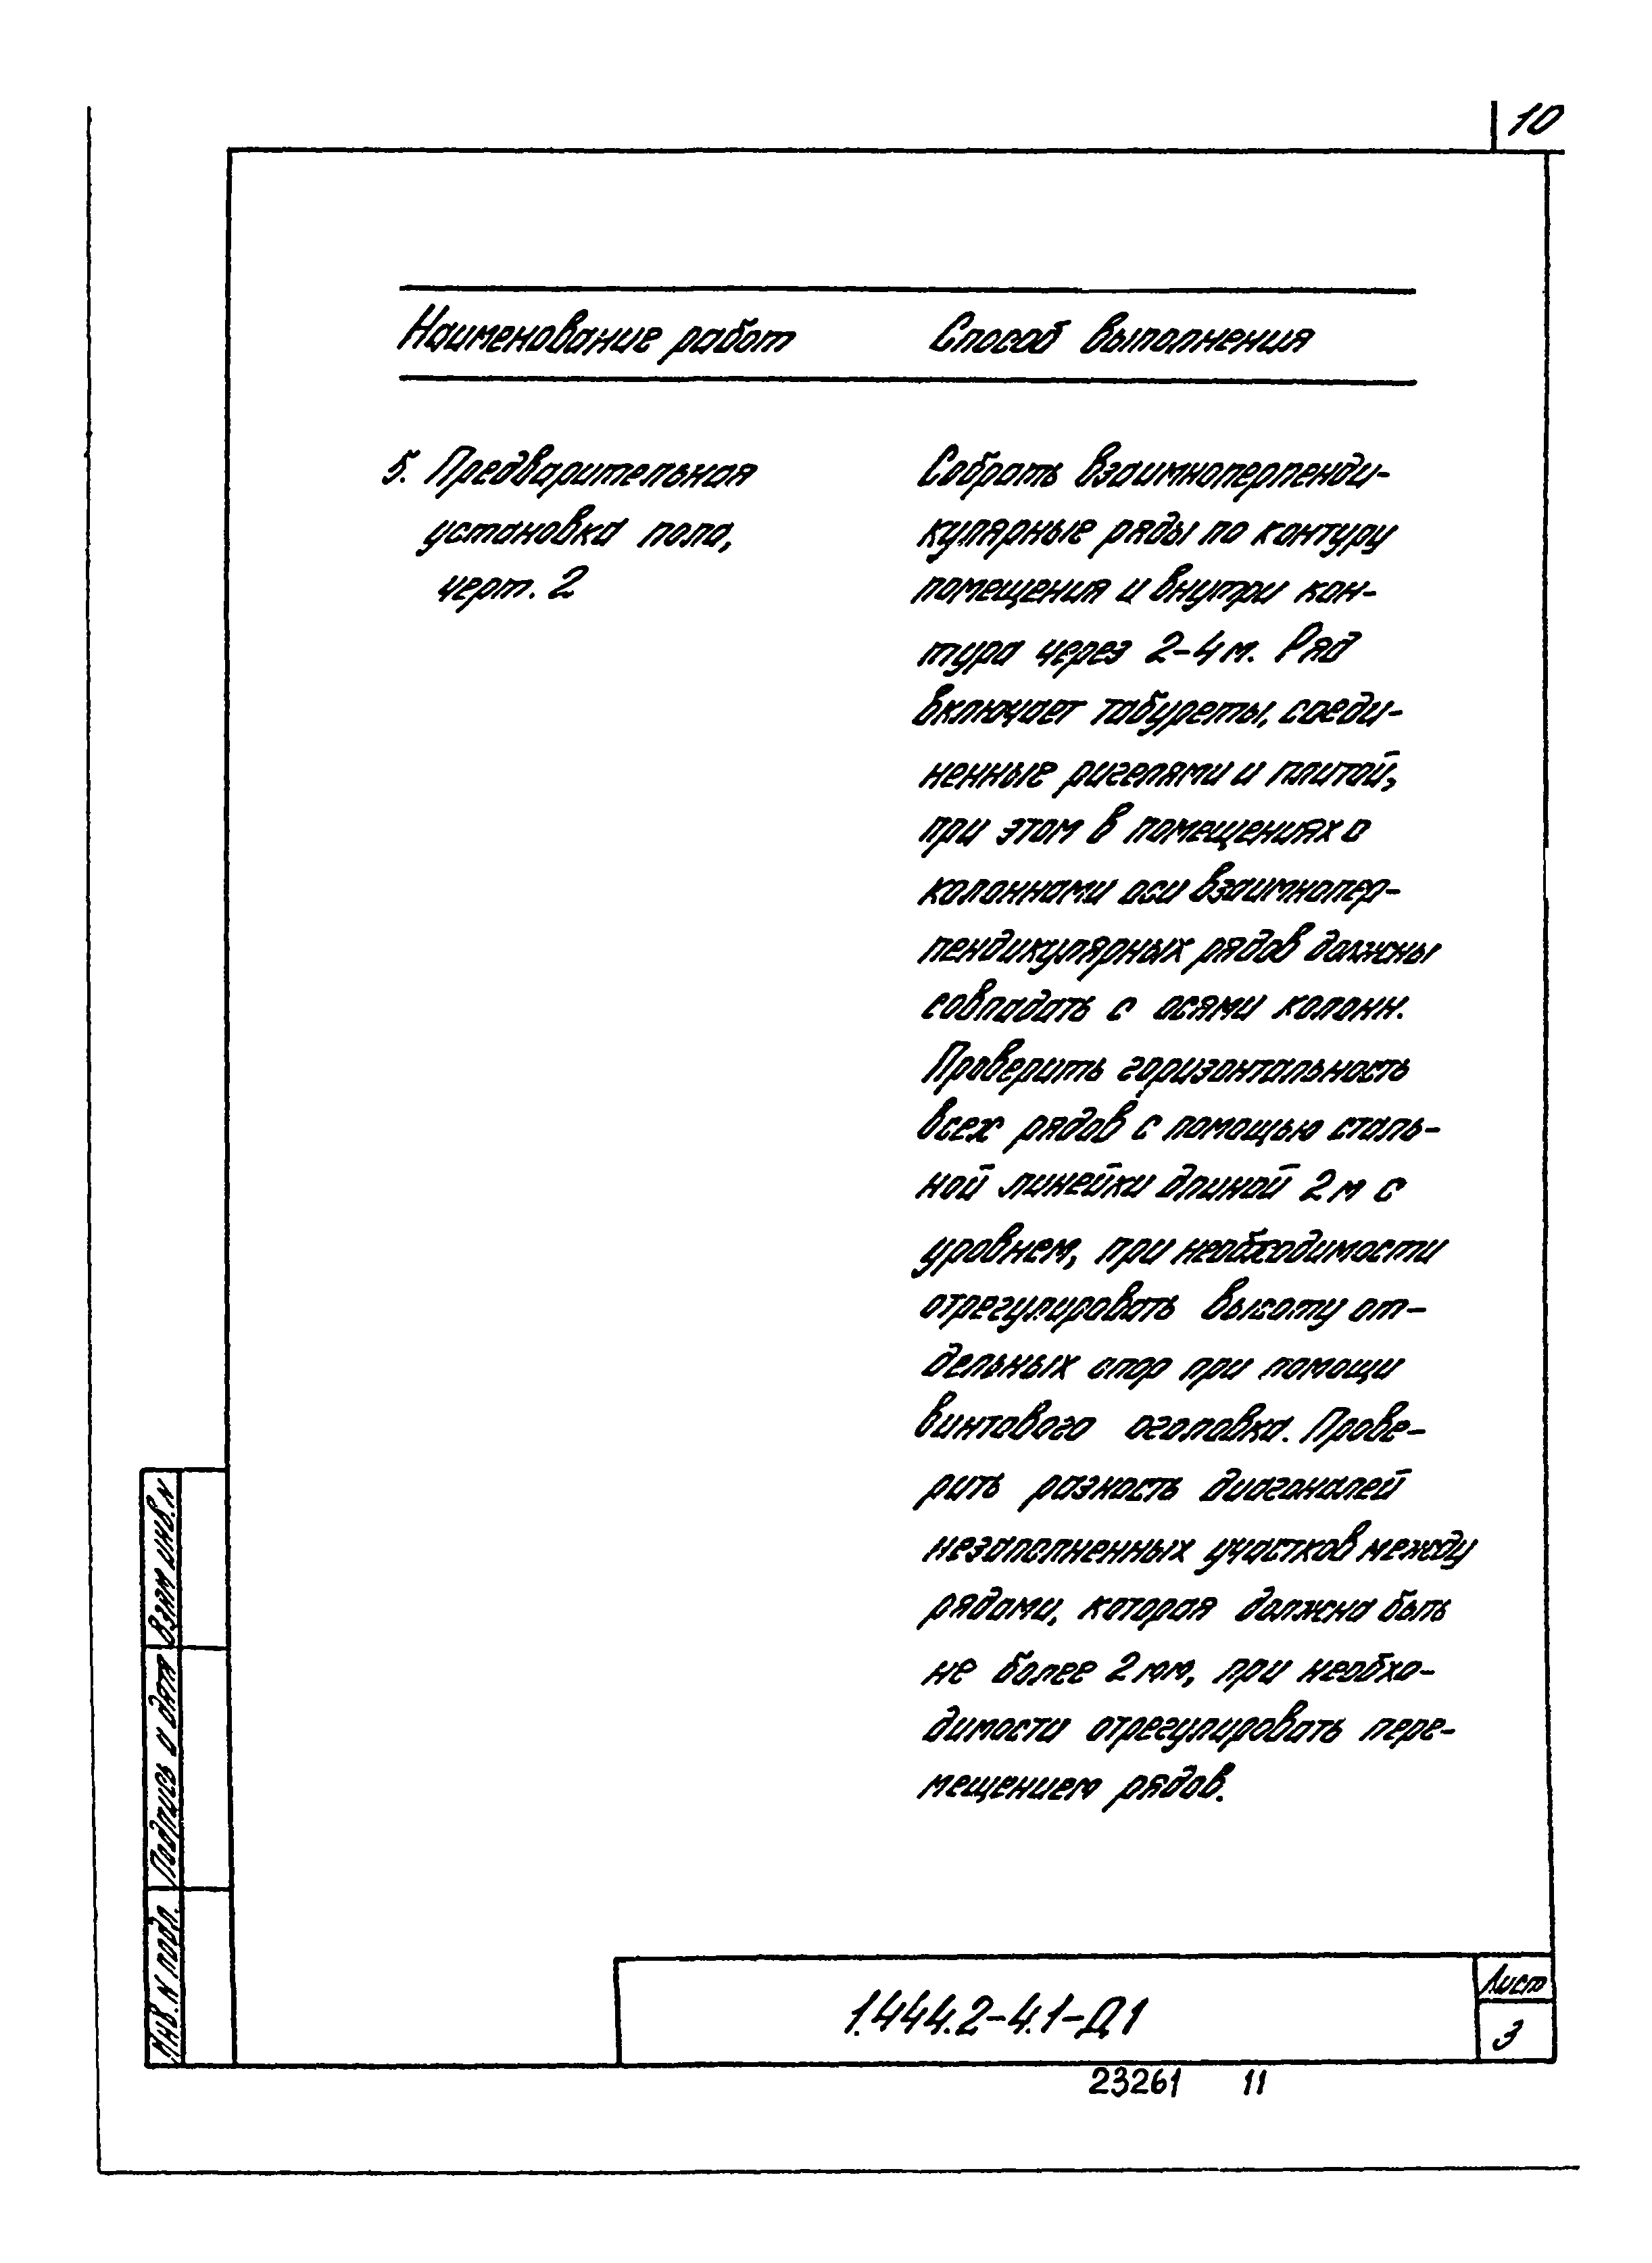 10
Наименование работ
Способ выполнения
5. Предварительная
установка пола,
черт. 2
Собрать взаимноперпенди-
кулярные ряды по контуру
помещения и внутри кон-
тура через 2-4 м. Ряд
включает табуреты, соеди-
ненные ригелями и плитой,
при этом в помещениях с
колоннами оси взаимнопер-
пендикулярных рядов должны
совпадать с осями колонн.
Проверить горизонтальность
всех рядов с помощью сталь-
ной линейки длиной 2 м с
уровнем, при необходимости
отрегулировать высоту от-
дельных опор при помощи
винтового оголовка. Прове-
рить разность диагоналей
незаполненных участков между
рядами, которая должна быть
не более 2 мм, при необхо-
димости отрегулировать пере-
мещением рядов.
Взам инв.N
Подпись и дата
Инв. N подл.
1.444.2-4.1-Д1
Лист
3
23261 11